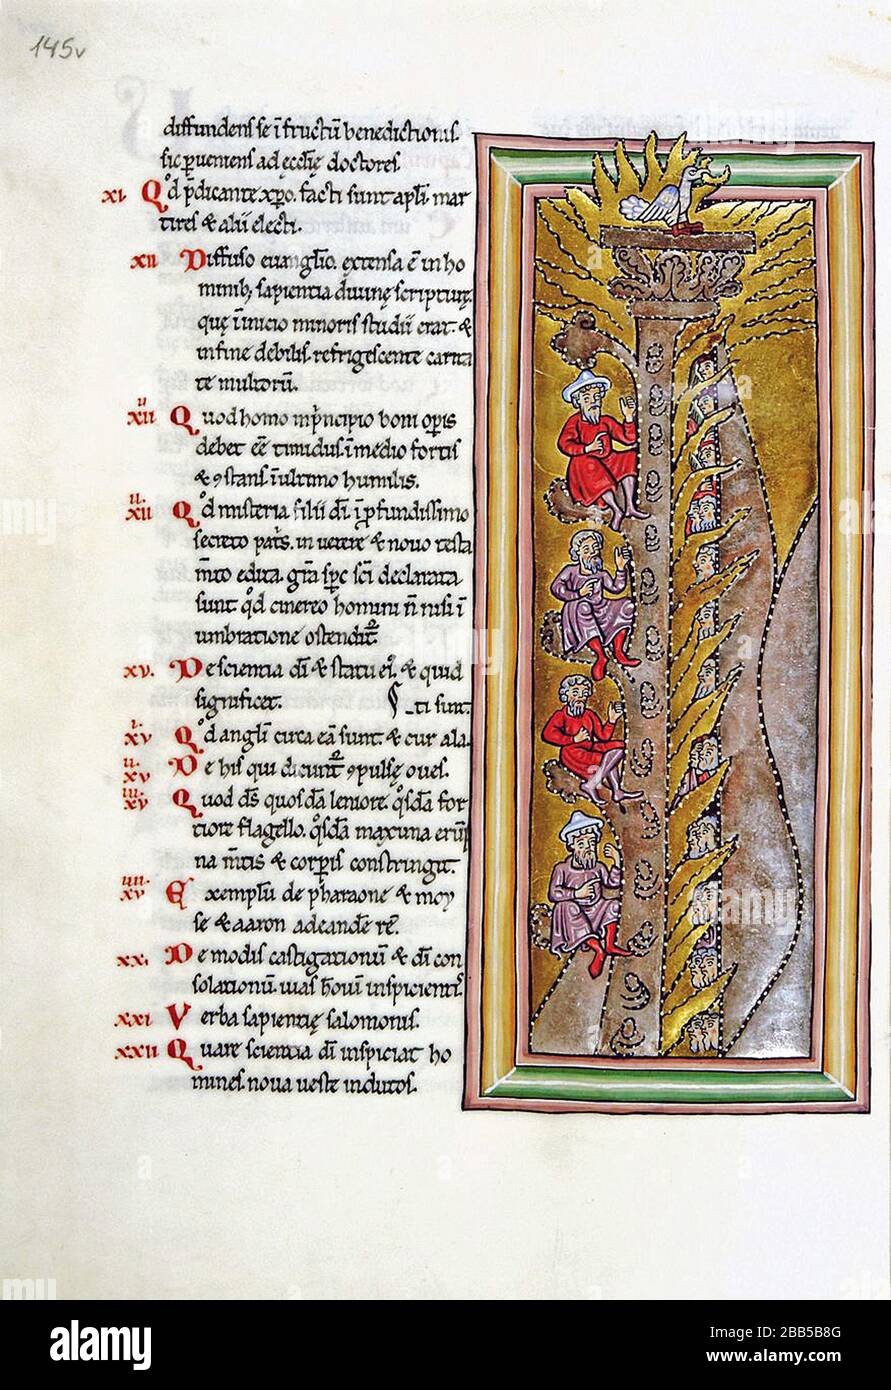 145v
diffundens se ī fructū benedictionis.
sic ꝑueniens ad ecclię doctores.
xi. Qd p̄dicante xp̄o. facti sunt apl̄i. mar
tires & alii electi.
xii Diffuso euanglio. extensa ē in ho
minib; sapientia diuinę scripturę.
quę ī inicio minoris studii erat. &
in fine debilis. refrigescente carita
te multorū.
xii Quod homo in p̄ncipio boni oꝑis
debet eē timidus. ī medio fortis
& ꝯstans. ī ultimo humilis.
xii Qd misteria filii dī ī ꝓfundissimo
secreto patˢ. in uetere & nouo testa
m̄to edita. gr̄a spc sc̄i declarata
sunt qd cinereo homini n̄ nisi ī
umbratione ostenditᷣ.
xv. De scientia dī & statu eiꝰ. & quid
significet. ti sunt.
xv Qd angl̄i circa eā sunt. & cur ala
xv De his qui dicuntᷣ ꝯpulsę oues.
xv Quod dˢ quosdā leniore. qosdā for
tiore flagello. qosdā maxima erūp
na m̄tis & corꝑis constringit.
xv Exemplū de pharaone & moy
se & aaron ad eandē rē.
xx. De modis castigationū & dī con
solationū. uias hoīū inspicientˢ.
xxi Verba sapientię salomonis.
xxii Quare scientia dī inspiciat ho
mines. noua ueste indutos.
alamy
Image ID: 2BB5B8G
www.alamy.com